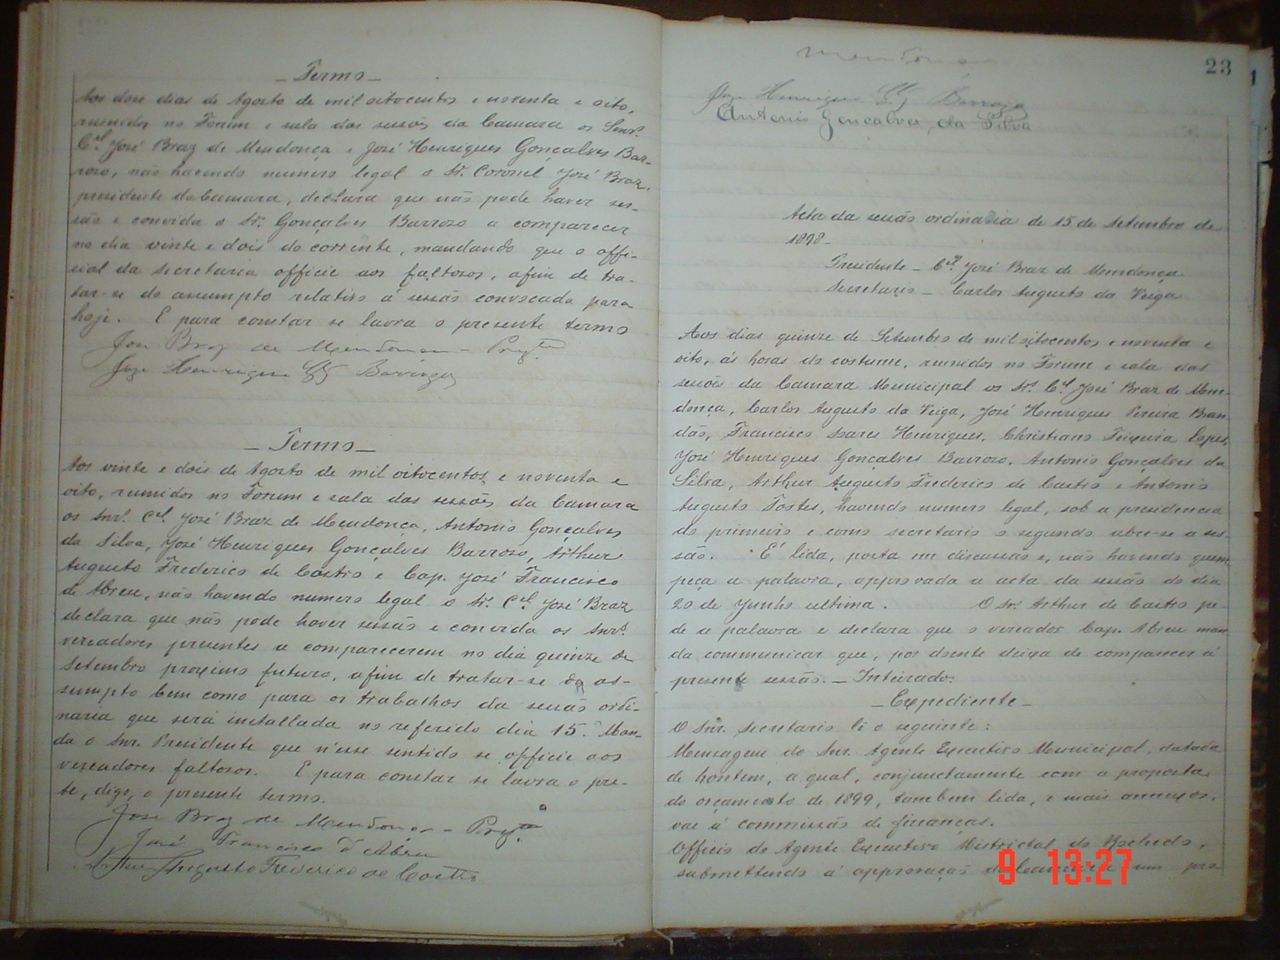 — Termo —
Aos doze dias de Agosto de mil oitocentos e noventa e oito,
reunidos no Forum e sala das sessões da Camara os Snrs.
Cel. José Braz de Mendonça e José Henriques Gonçalves Bar-
rozo, não havendo numero legal o Sr. Coronel José Braz,
presidente da Camara, declara que não pode haver ses-
são e convida o Sr. Gonçalves Barrozo a comparecer
no dia vinte e dois do corrente, mandando que o offi-
cial da secretaria officie aos faltosos, afim de tra-
tar-se do assumpto relativo á sessão convocada para
hoje. E para constar se lavra o presente termo
José Braz de Mendonça – Prezte.
Joze Henriques Glz Barrozo
— Termo —
Aos vinte e dois de Agosto de mil oitocentos e noventa e
oito, reunidos no Forum e sala das sessões da Camara
os Snrs. Cel. José Braz de Mendonça, Antonio Gonçalves
da Silva, José Henriques Gonçalves Barrozo, Arthur
Augusto Frederico de Castro e Cap. José Francisco
de Abreu, não havendo numero legal o Sr. Cel. José Braz
declara que não pode haver sessão e convida os Snrs.
vereadores presentes a comparecerem no dia quinze de
Setembro proximo futuro, afim de tratar-se do as-
sumpto bem como para os trabalhos da sessão ordi-
naria que será installada no referido dia 15. Man-
da o Snr. Presidente que n'esse sentido se officie aos
vereadores faltosos. E para constar se lavra o pre-
te, digo, o presente termo.
José Braz de Mendonça – Prezte.
José Francisco d'Abreu
Arthur Augusto Frederico de Castro
23
Mendonça
Joze Henriques Glz Barrozo
Antonio Gonçalves da Silva
Acta da sessão ordinaria de 15 de Setembro de
1898 –
Presidente – Cel. José Braz de Mendonça
Secretario – Carlos Augusto da Veiga
Aos dias quinze de Setembro de mil oitocentos e noventa e
oito, ás horas do costume, reunidos no Forum e sala das
sessões da Camara Municipal os Srs. Cel. José Braz de Men-
donça, Carlos Augusto da Veiga, José Henriques Pereira Bran-
dão, Francisco Soares Henriques, Christiano Teixeira Lopes,
José Henriques Gonçalves Barrozo, Antonio Gonçalves da
Silva, Arthur Augusto Frederico de Castro e Antonio
Augusto Fortes, havendo numero legal, sob a presidencia
do primeiro e como secretario o segundo abre-se a ses-
são. É lida, posta em discussão e, não havendo quem
peça a palavra, approvada a acta da sessão do dia
20 de Junho ultimo. O Sr. Arthur de Castro pe-
de a palavra e declara que o vereador Cap. Abreu man-
da communicar que, por doente deixa de comparecer á
presente sessão. – Inteirado.
— Expediente —
O Snr. Secretario lê o seguinte:
Mensagem do Snr. Agente Executivo Municipal, datada
de hontem, a qual, conjunctamente com a proposta
do orçamento de 1899, tambem lida, e mais annexos,
vae á commissão de finanças.
Officio do Agente Executivo Districtal do
submettendo á approvação da Camara um pro-
9 13:27